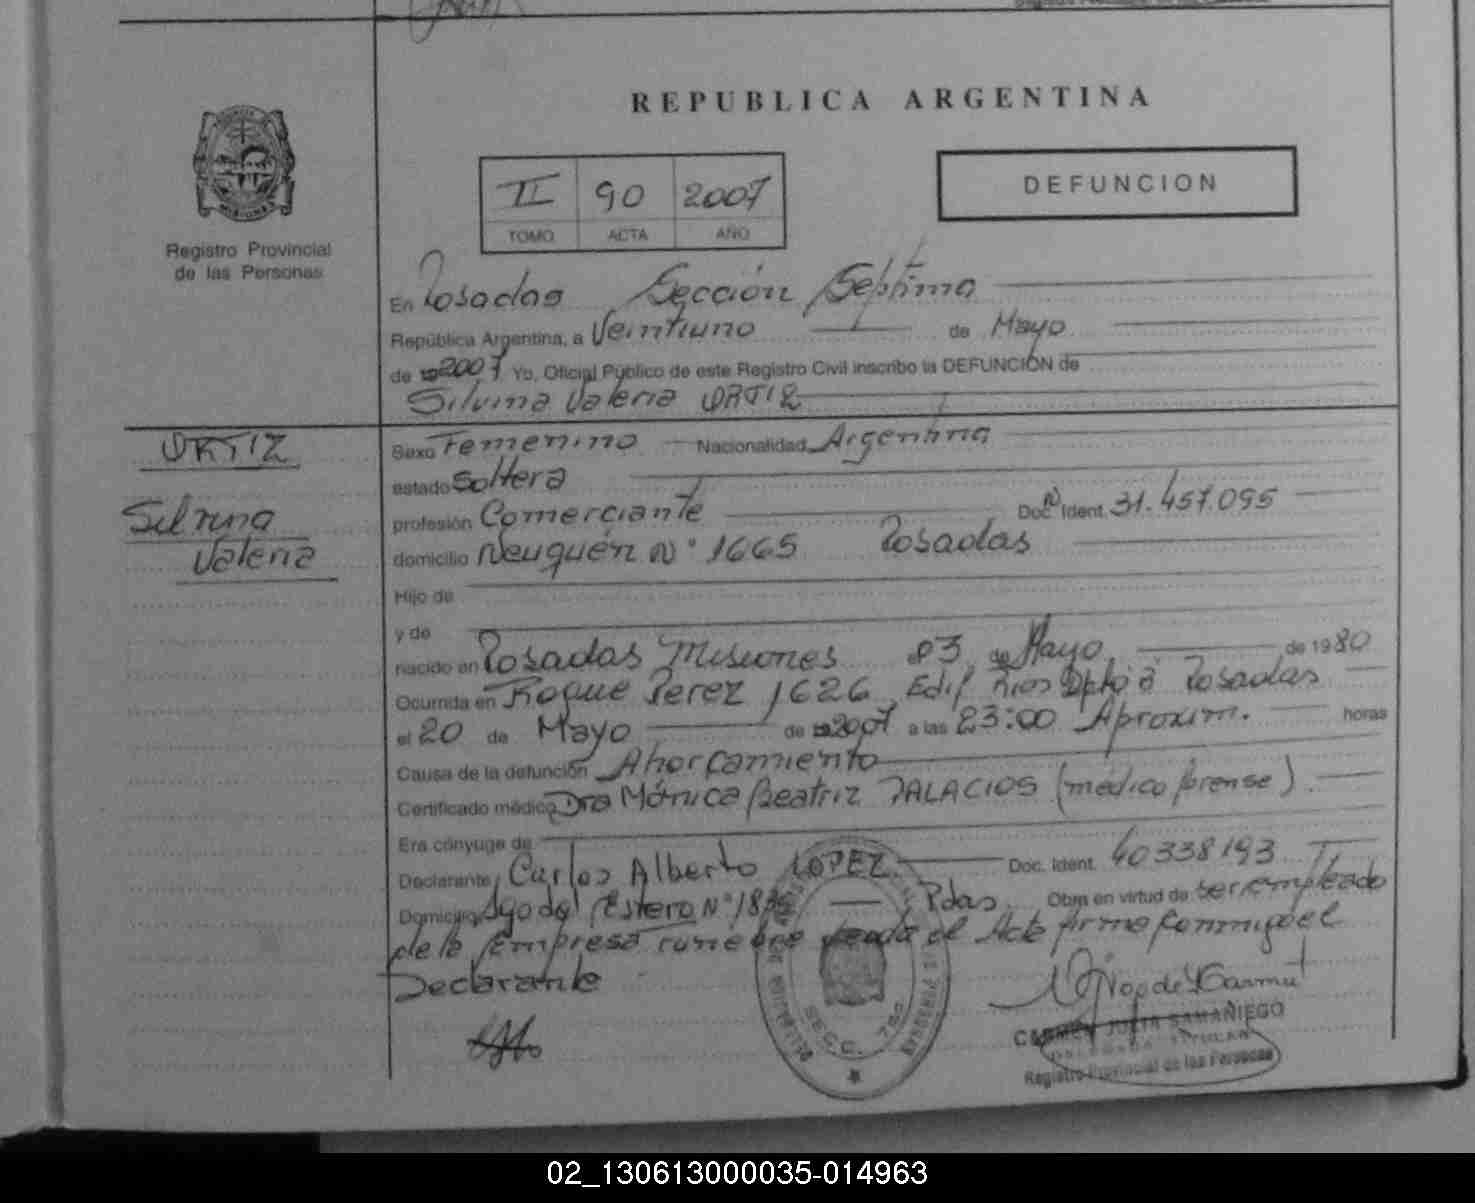 REPUBLICA ARGENTINA
II 90 2007
TOMO ACTA AÑO
DEFUNCION
MISIONES
Registro Provincial
de las Personas
En Posadas Sección Septima
República Argentina, a Veintiuno de Mayo
de 192007 Yo, Oficial Público de este Registro Civil inscribo la DEFUNCIÓN de
Silvina Valeria ORTIZ
ORTIZ
Silvina
Valeria
Sexo Femenino Nacionalidad Argentina
estado Soltera
profesión Comerciante Doc. Ident. 31.457.095
domicilio Neuquén N° 1665 Posadas
Hijo de
y de
nacido en Posadas Misiones 03 de Mayo de 1980
Ocurrida en Roque Perez 1626 Edif. Rios Dpto Posadas
el 20 de Mayo de 192007 a las 23:00 Aproxim. horas
Causa de la defunción Ahorcamiento
Certificado médico Dra Mónica Beatriz PALACIOS (médico forense)
Era cónyuge de
Declarante Carlos Alberto LOPEZ Doc. Ident. 40338193
Domicilio Sgo del Estero N° Pdas. Obra en virtud de ser empleado
de la Empresa funebre el Acta firma conmigo el
Declarante
SECC. 7
CARMEN JULIA SAMAÑIEGO
DELEGADA TITULAR
Registro Provincial de las Personas
02_130613000035-014963